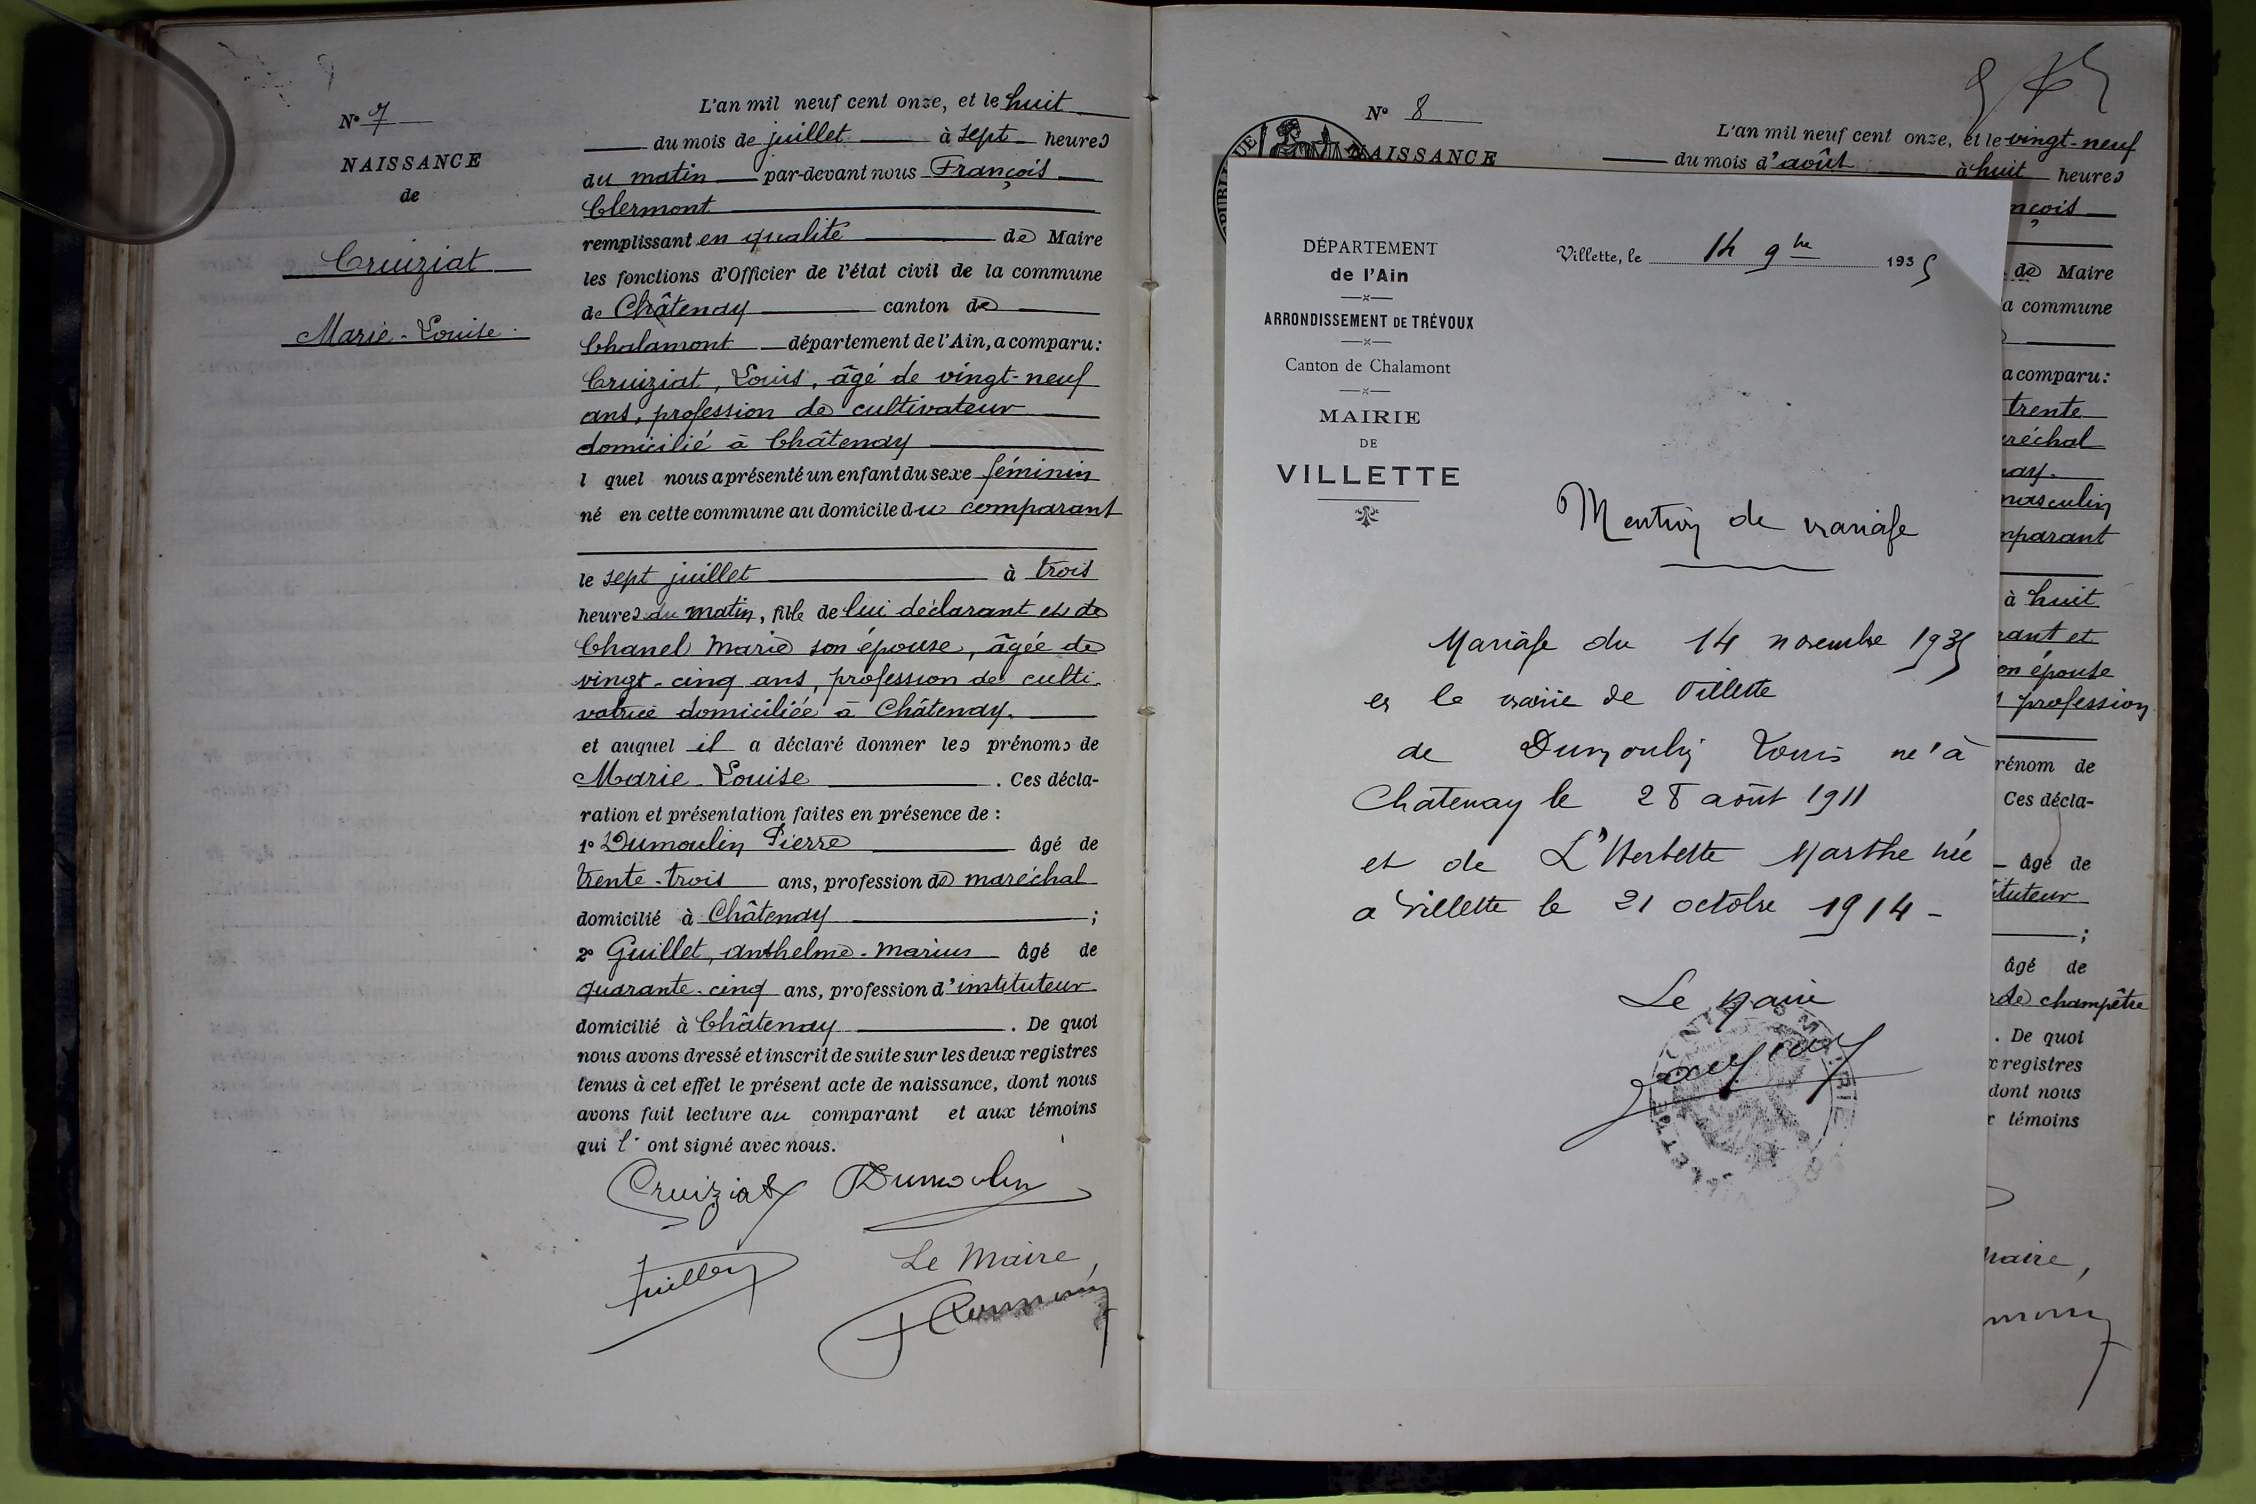 N° 7
NAISSANCE
de
Cruiziat
Marie-Louise
L'an mil neuf cent onze, et le huit
du mois de juillet à sept heures
du matin par-devant nous François
Clermont
remplissant en qualité de Maire
les fonctions d'Officier de l'état civil de la commune
de Châtenay canton de
Chalamont département de l'Ain, a comparu:
Cruiziat, Louis, âgé de vingt-neuf
ans, profession de cultivateur
domicilié à Châtenay
l quel nous a présenté un enfant du sexe féminin
né en cette commune au domicile du comparant
le sept juillet à trois
heures du matin, fille de lui déclarant et de
Chanel Marie son épouse, âgée de
vingt-cinq ans, profession de culti-
vatrice domiciliée à Châtenay.
et auquel il a déclaré donner les prénoms de
Marie-Louise . Ces décla-
ration et présentation faites en présence de :
1° Dumoulin Pierre âgé de
trente-trois ans, profession de maréchal
domicilié à Châtenay ;
2° Guillet, Anthelme-Marius âgé de
quarante-cinq ans, profession d'instituteur
domicilié à Châtenay . De quoi
nous avons dressé et inscrit de suite sur les deux registres
tenus à cet effet le présent acte de naissance, dont nous
avons fait lecture au comparant et aux témoins
qui l' ont signé avec nous.
Cruiziat Dumoulin
Le Maire,
N° 8
NAISSANCE
L'an mil neuf cent onze, et le vingt-neuf
du mois d'août à huit heures
nçois
de Maire
a commune
a comparu:
trente
réchal
nay.
masculin
mparant
à huit
rant et
on épouse
profession
rénom de
Ces décla-
âgé de
tituteur
;
âgé de
rde champêtre
. De quoi
x registres
dont nous
x témoins
Maire,
DÉPARTEMENT
de l'Ain
ARRONDISSEMENT DE TRÉVOUX
Canton de Chalamont
MAIRIE
DE
VILLETTE
Villette, le 14 9bre 1935
Mention de mariage
Mariage du 14 novembre 1935
en la mairie de Villette
de Dumoulin Louis né à
Chatenay le 28 août 1911
et de L'Herbette Marthe née
a Villette le 21 octobre 1914 -
Le Maire